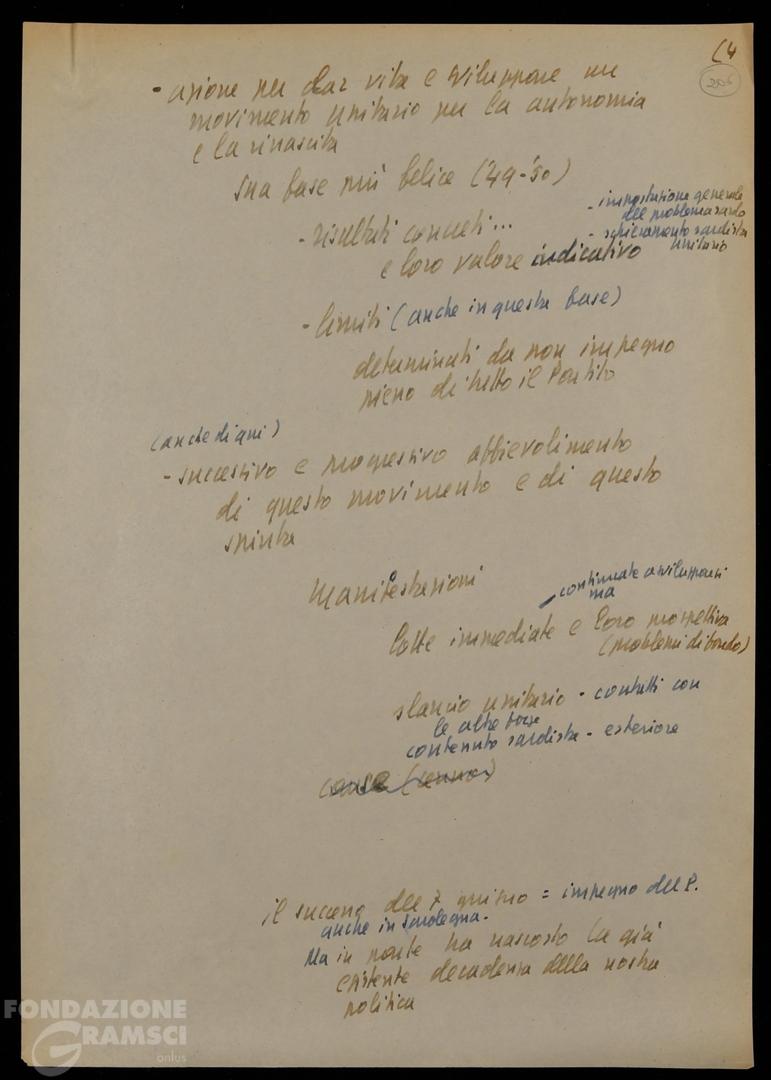 (4
2506
- azione per dar vita e sviluppare un
movimento unitario per la autonomia
e la rinascita
sua fase più felice ('49-'50)
- risultati concreti...
e loro valore indicativo
- impostazione generale
del problema sardo
- schieramento sardista
unitario
- limiti (anche in questa fase)
determinati da non impegno
pieno di tutto il Partito
(anche di qui)
- successivo e progressivo affievolimento
di questo movimento e di questo
spinta
Manifestazioni
continuate a svilupparsi
ma
lotte immediate e loro prospettiva
(problemi di fondo)
slancio unitario - contatti con
le altre forze
contenuto sardista - esteriore
cause (cenno)
il successo del 7 giugno = impegno del P.
anche in Sardegna.
Ma in parte ha nascosto la già
esistente decadenza della nostra
politica
FONDAZIONE
GRAMSCI
onlus